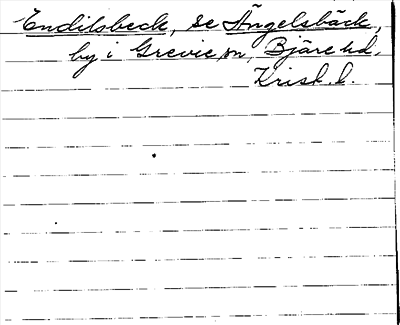 Endilsbeck, se Ängelsbäck,
by i Grevie sn, Bjäre hd.
Krist. l.